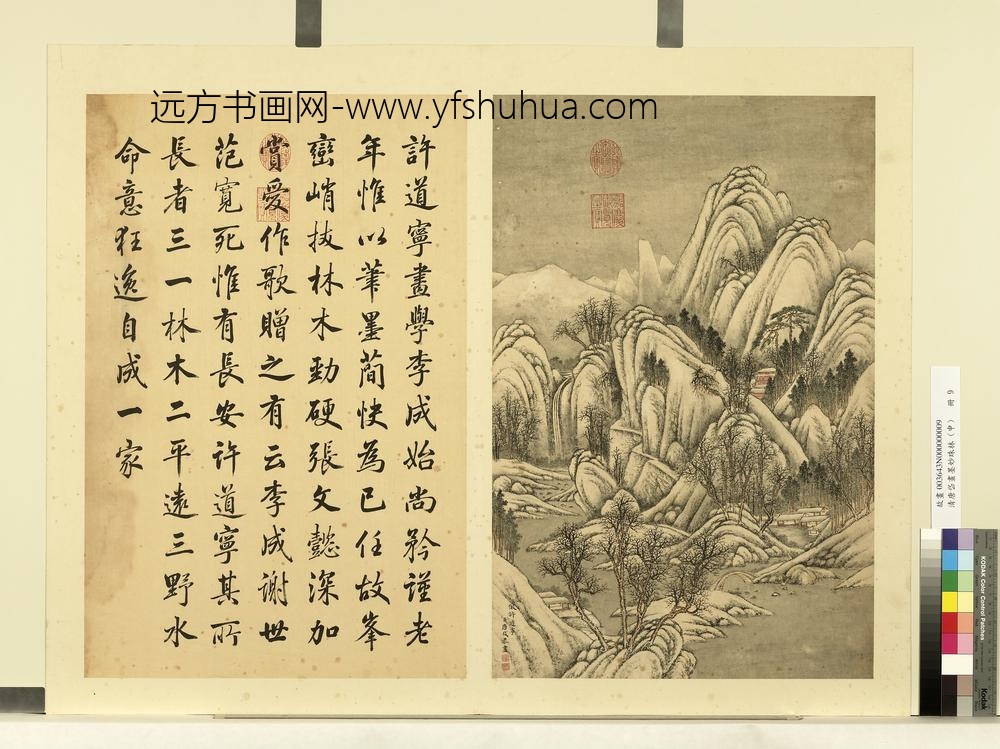 远方书画网-www.yfshuhua.com
許道寧畫學李成始尚矜謹老
年惟以筆墨蕳快為已任故峯
巒峭拔林木勁硬張文懿深加
賞愛作歌贈之有云李成謝世
范寬死惟有長安許道寧其所
長者三一林木二平遠三野水
命意狂逸自成一家
故畫003643N000000009
清唐岱畫墨妙珠林(申) 冊 9
KODAK Color Control Patches
Kodak